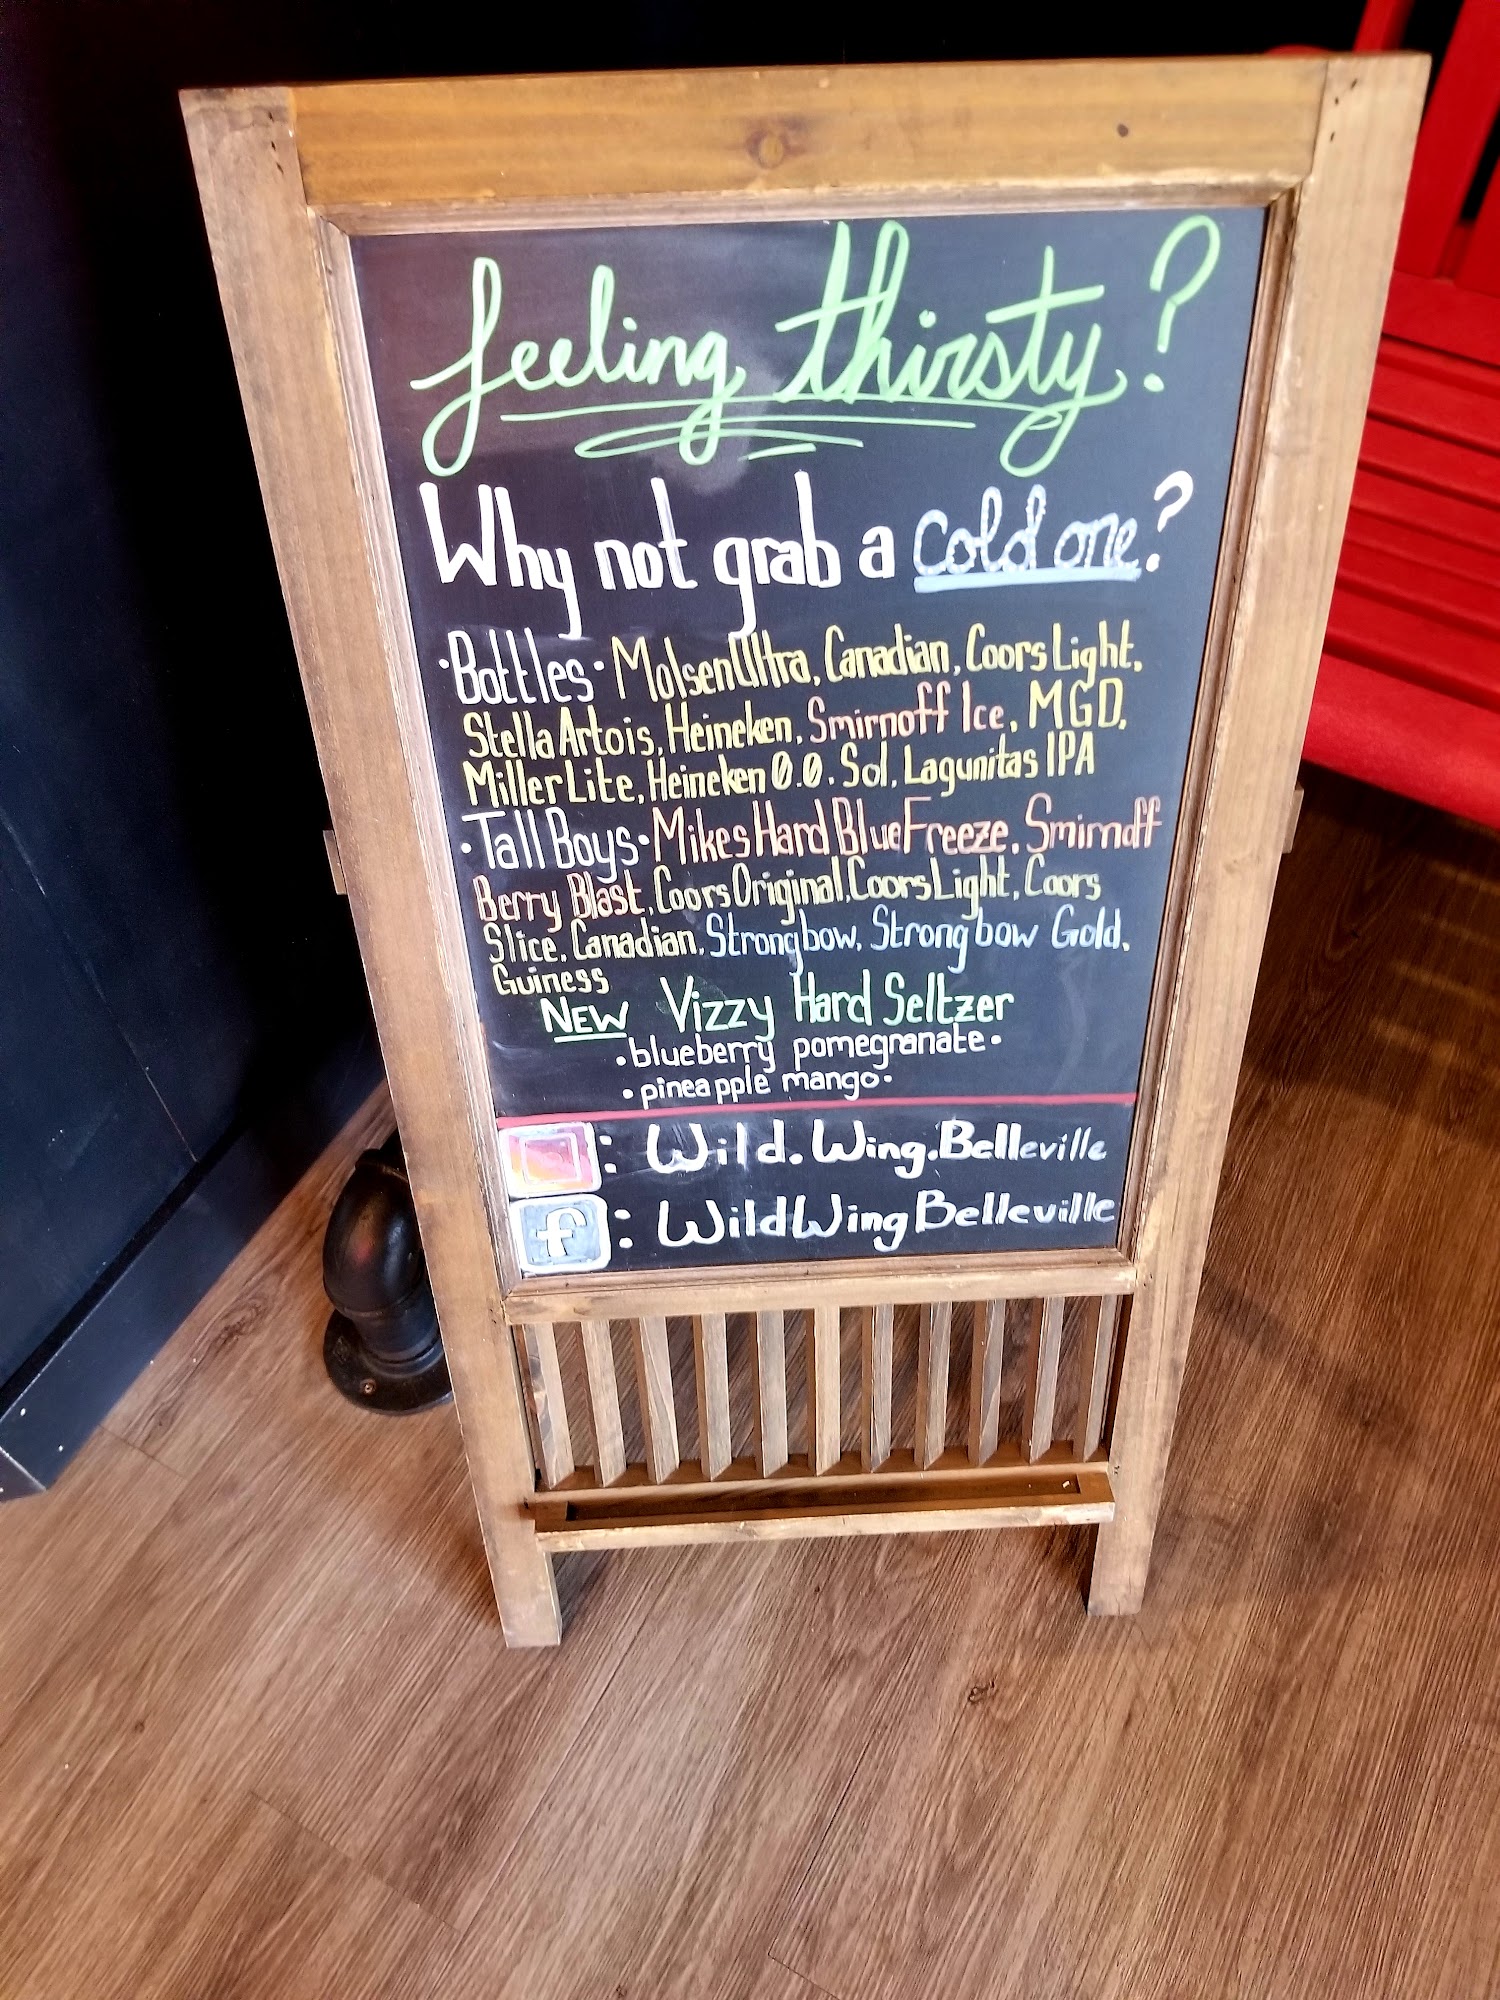 feeling thirsty?
Why not grab a cold one?
·Bottles· Molsen Ultra, Canadian, Coors Light,
Stella Artois, Heineken, Smirnoff Ice, MGD,
Miller Lite, Heineken 0.0, Sol, Lagunitas IPA
·Tall Boys· Mikes Hard Blue Freeze, Smirnoff
Berry Blast, Coors Original, Coors Light, Coors
Slice, Canadian, Strongbow, Strongbow Gold,
Guiness
NEW Vizzy Hard Seltzer
·blueberry pomegranate·
·pineapple mango·
: Wild.Wing.Belleville
f : WildWingBelleville